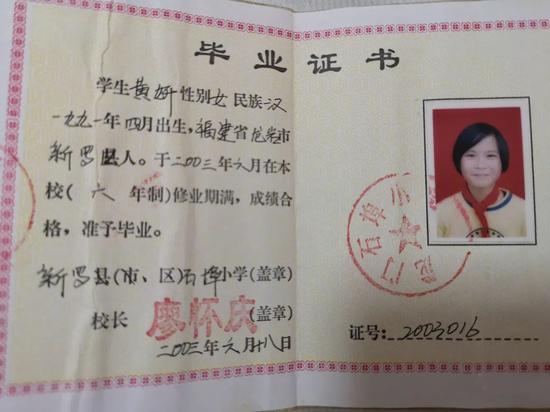 毕业证书
学生黄妍性别女民族汉
一九九一年四月出生，福建省龙岩市
新罗县人。于二00三年六月在本
校（六年制）修业期满，成绩合
格，准予毕业。
新罗县（市、区）石埠小学（盖章）
校长 廖怀庆 （盖章）
二00三年六月十八日
证号：2003016